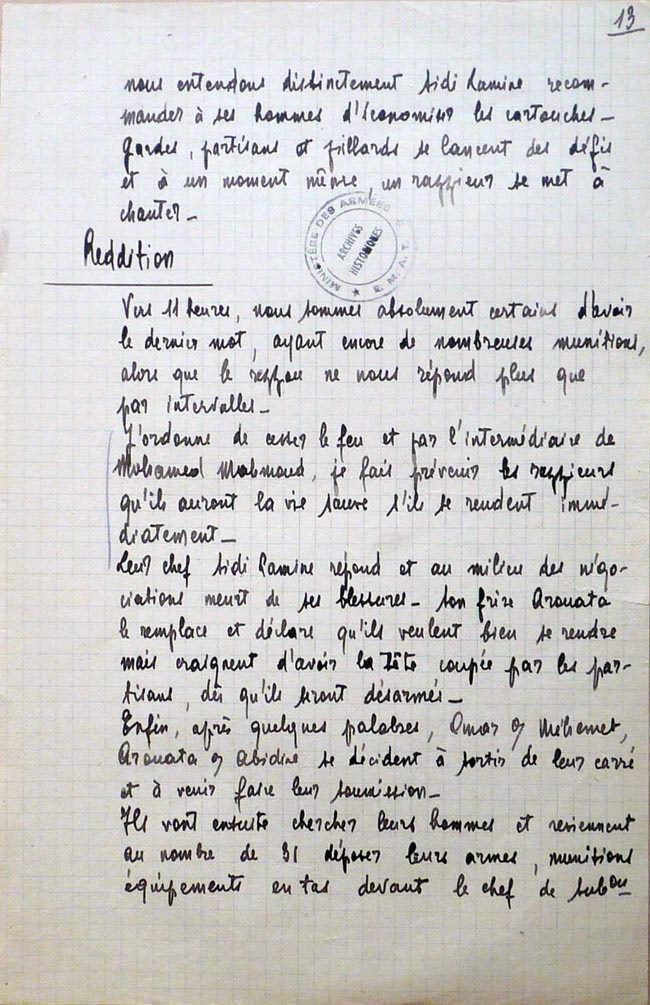 13
nous entendons distinctement Sidi Lamine recom-
mander à ses hommes d'économiser les cartouches_
Gardes, partisans et pillards se lancent des défis
et à un moment même, un razzieur se met à
chanter_
MINISTÈRE DES ARMÉES
ARCHIVES
HISTORIQUES
E.M.A.T.
Reddition
Vers 11 heures, nous sommes absolument certains d'avoir
le dernier mot, ayant encore de nombreuses munitions,
alors que le rezzou ne nous répond plus que
par intervalles_
J'ordonne de cesser le feu et par l'intermédiaire de
Mohamed Mahmoud, je fais prévenir les razzieurs
qu'ils auront la vie sauve s'ils se rendent immé-
diatement_
Leur chef Sidi Lamine répond et au milieu des négo-
ciations meurt de ses blessures_ Son frère Arouata
le remplace et déclare qu'ils veulent bien se rendre
mais craignent d'avoir la tête coupée par les par-
tisans, dès qu'ils seront désarmés_
Enfin, après quelques palabres, Omar og Mehemet,
Arouata og Abidine se décident à sortir de leur carré
et à venir faire leur soumission_
Ils vont ensuite chercher leurs hommes et reviennent
au nombre de 31 déposer leurs armes, munitions
équipements en tas devant le chef de subon